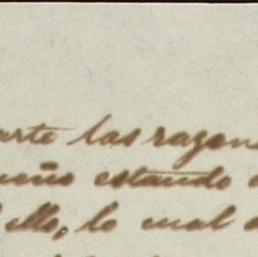 arte las razon
ueño estando
ello, lo cual